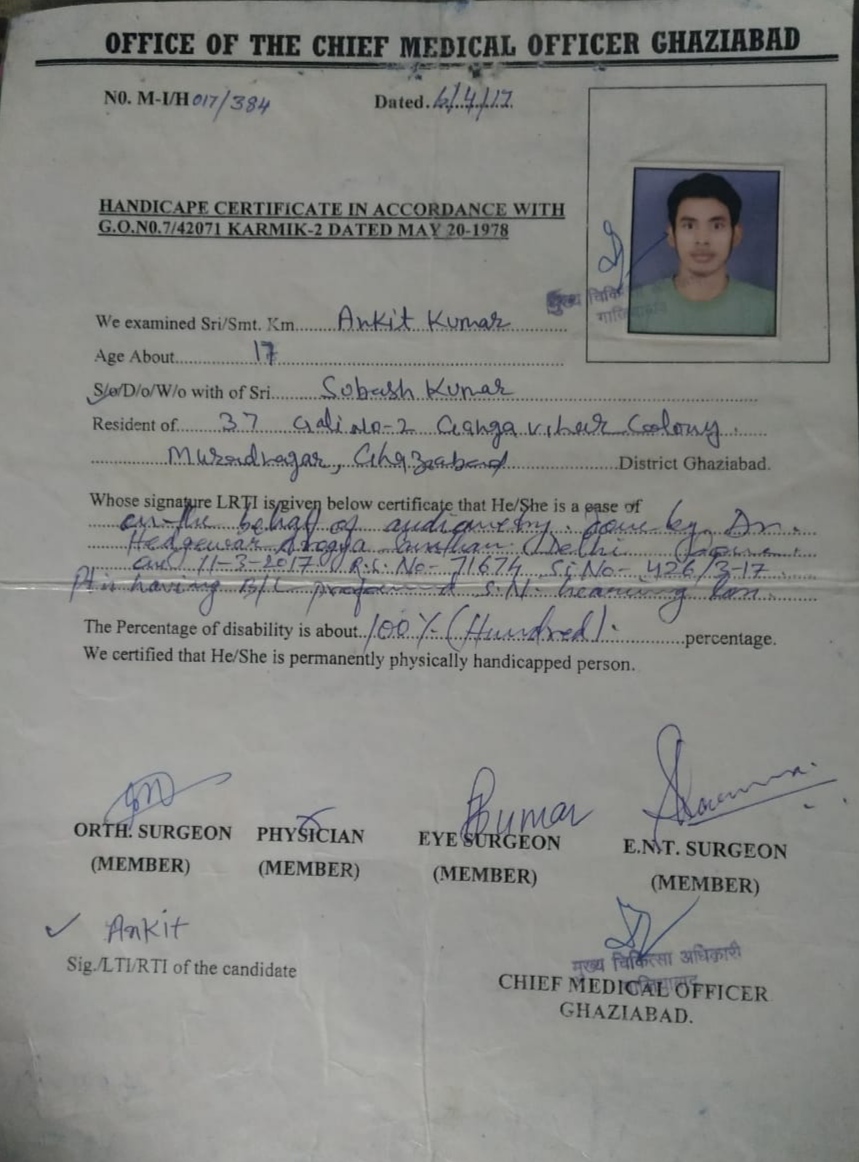 OFFICE OF THE CHIEF MEDICAL OFFICER GHAZIABAD
N0. M-I/H 017/384 Dated. 6/4/17
HANDICAPE CERTIFICATE IN ACCORDANCE WITH
G.O.N0.7/42071 KARMIK-2 DATED MAY 20-1978
मुख्य चिकि
We examined Sri/Smt. Km. Ankit Kumar
Age About 17
S/o/D/o/W/o with of Sri Sobash Kumar
Resident of 37 Gali No-2 Ganga vihar Colony.
Muradnagar, Ghaziabad District Ghaziabad.
Whose signature LRTI is given below certificate that He/She is a case of
on the behalf of audiometry done by Dr.
Hedgewar Arogya Sansthan Delhi
on 11-3-2017 R.S. No- 71674 S.No- 426/3-17
Pt is having B/L profound S.N. hearing loss.
The Percentage of disability is about 100% (Hundred). percentage.
We certified that He/She is permanently physically handicapped person.
Kumar
ORTH. SURGEON PHYSICIAN EYE SURGEON E.N.T. SURGEON
(MEMBER) (MEMBER) (MEMBER) (MEMBER)
Ankit
Sig./LTI/RTI of the candidate
मुख्य चिकित्सा अधिकारी
CHIEF MEDICAL OFFICER
GHAZIABAD.